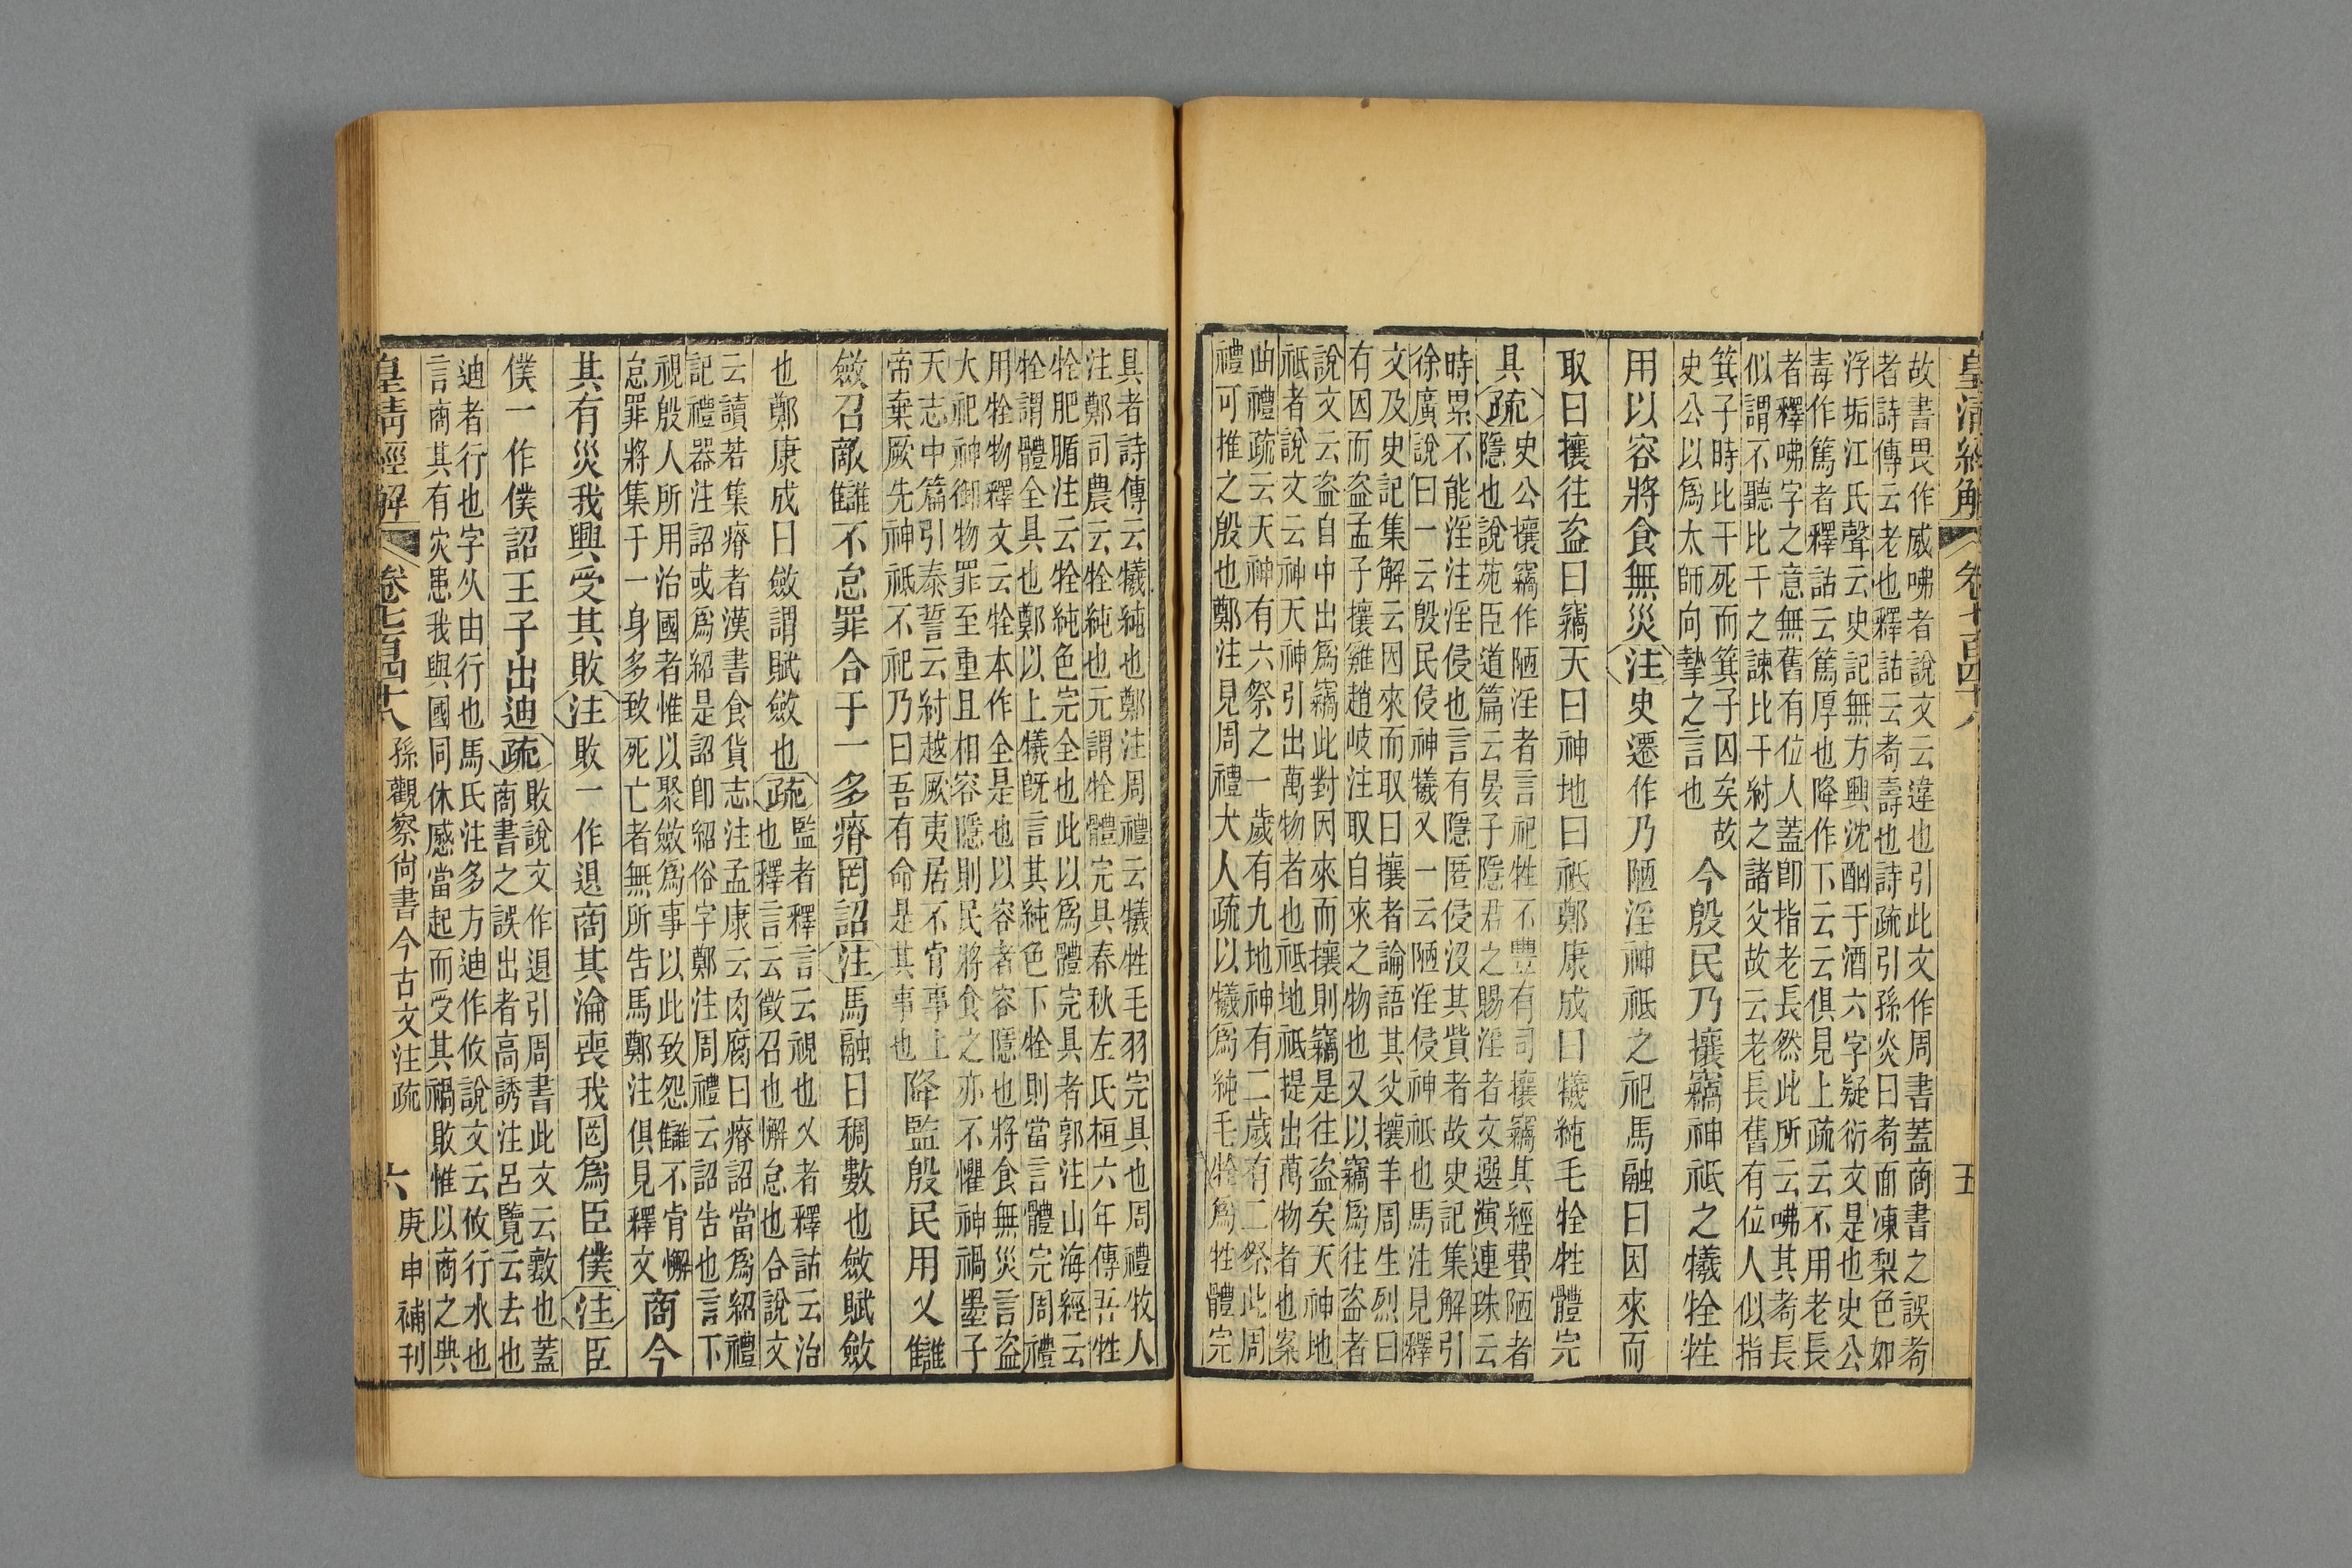 皇清經解
卷七百四十八
五
故書畏作威咈者說文云違也引此文作周書蓋商書之誤耇
者詩傳云老也釋詁云耇壽也詩疏引孫炎曰耇面凍梨色如
浮垢江氏聲云史記無方興沈酗于酒六字疑衍文是也史公
毒作篤者釋詁云篤厚也降作下云云俱見上疏云不用老長
者釋咈字之意無舊有位人蓋卽指老長然此所云咈其耇長
似謂不聽比干之諫比干紂之諸父故云老長舊有位人似指
箕子時比干死而箕子囚矣故
史公以爲太師向摯之言也
今殷民乃攘竊神祇之犧牷牲
用以容將食無災注史遷作乃陋淫神祇之祀馬融曰因來而
取曰攘往盜曰竊天曰神地曰祇鄭康成曰犧純毛牷牲體完
具疏
史公攘竊作陋淫者言祀牲不豐有司攘竊其經費陋者
隱也說苑臣道篇云晏子隱君之賜淫者文選演連珠云
時累不能淫注淫侵也言有隱匿侵沒其貲者故史記集解引
徐廣說曰一云殷民侵神犧又一云陋淫侵神祇也馬注見釋
文及史記集解云因來而取曰攘者論語其父攘羊周生烈曰
有因而盜孟子攘雞趙岐注取自來之物也又以竊爲往盜者
說文云盜自中出爲竊此對因來而攘則竊是往盜矣天神地
祇者說文云神天神引出萬物者也祇地祇提出萬物者也案
曲禮疏云天神有六祭之一歲有九地神有二歲有二祭此周
禮可推之殷也鄭注見周禮犬人疏以犧爲純毛牷爲牲體完
具者詩傳云犧純也鄭注周禮云犧牲毛羽完具也周禮牧人
注鄭司農云牷純也元謂牷體完具春秋左氏桓六年傳吾牲
牷肥腯注云牷純色完全也此以爲體完具者郭注山海經云
牷謂體全具也鄭以上犧旣言其純色下牷則當言體完周禮
用牷物釋文云牷本作全是也以容者容隱也將食無災言盜
大祀神御物罪至重且相容隱則民將食之亦不懼神禍墨子
天志中篇引泰誓云紂越厥夷居不肯事上
帝棄厥先神祇不祀乃曰吾有命是其事也
降監殷民用乂讎
斂召敵讎不怠罪合于一多瘠罔詔注馬融曰稠數也斂賦斂
也鄭康成曰斂謂賦斂也疏
監者釋言云視也乂者釋詁云治
也釋言云徵召也懈怠也合說文
云讀若集瘠者漢書食貨志注孟康云肉腐曰瘠詔當爲紹禮
記禮器注詔或爲紹是詔卽紹俗字鄭注周禮云詔告也言下
視殷人所用治國者惟以聚斂爲事以此致怨讎不肯懈
怠罪將集于一身多致死亡者無所告馬鄭注俱見釋文
商今
其有災我興受其敗注敗一作退商其淪喪我罔爲臣僕注臣
僕一作僕詔王子出迪疏
敗說文作退引周書此文云斁也蓋
商書之誤出者高誘注呂覽云去也
迪者行也字从由行也馬氏注多方迪作攸說文云攸行水也
言商其有災患我與國同休慼當起而受其禍敗惟以商之典
皇清經解
卷七百四十八
孫觀察尙書今古文注疏
六
庚申補刊